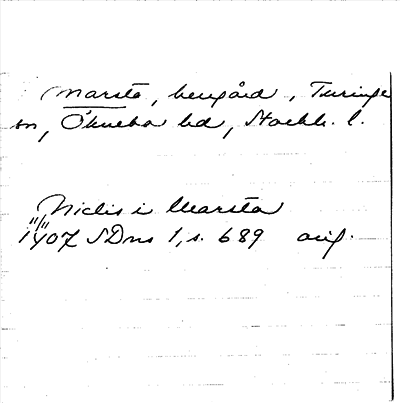 Marsta, herrgård, Turinge
sn, Öknebo hd, Stockh. l.
Niclis i Marsta
11/11 1407 SDns 1, s. 689 orig.